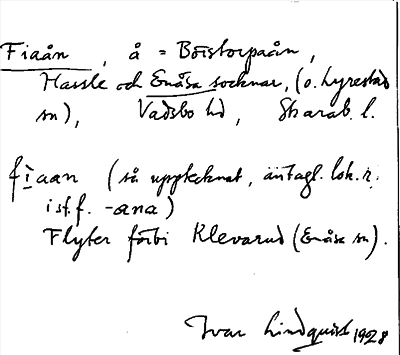 Fiaån, å = Börstorpaån,
Hassle och Enåsa socknar, (o. Lyrestad
sn), Vadsbo hd, Skarab. l.
fiaan (så upptecknat, antagl. lok. r.
i st. f. -ana)
Flyter förbi Klevarud (Enåsa sn).
Ivar Lindquist 1928